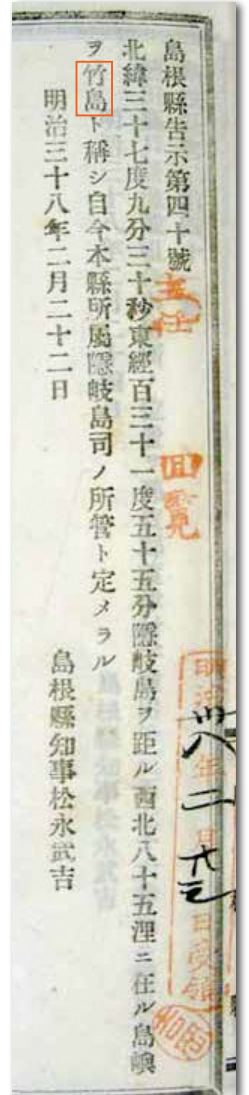 島根縣吿示第四十號
北緯三十七度九分三十秒東經百三十一度五十五分隱岐島ヲ距ル西北八十五浬ニ在ル島嶼
ヲ竹島ト稱シ自今本縣所屬隱岐島司ノ所管ト定メラル
明治三十八年二月二十二日
島根縣知事松永武吉
主任
回覽